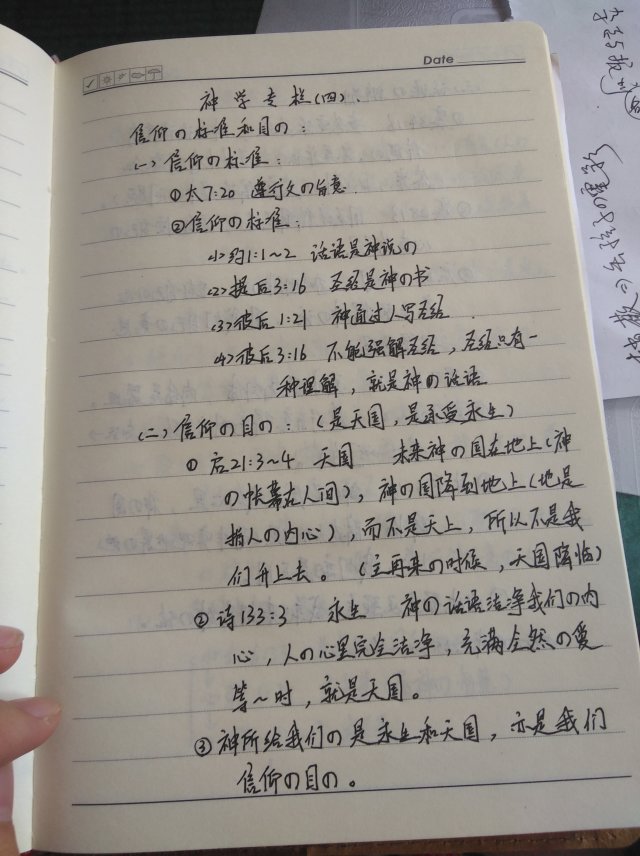 Date
神学专栏(四).
信仰の标准和目の:
(一)信仰の标准:
①太7:20 遵行父の旨意
②信仰の标准:
<1>约1:1~2 话语是神说の
<2>提后3:16 圣经是神の书
<3>彼后1:21 神通过人写圣经.
<4>彼后3:16 不能强解圣经,圣经只有一
种理解,就是神の话语
(二)信仰の目の:(是天国,是承受永生)
①启21:3~4 天国 未来神の国在地上(神
の帐幕在人间),神の国降到地上(地是
指人の内心),而不是天上,所以不是我
们升上去。(主再来の时候,天国降临)
②诗133:3 永生 神の话语洁净我们の内
心,人の心里完全洁净,充满全然の爱
等~时,就是天国。
③神所给我们の是永生和天国,亦是我们
信仰の目の。